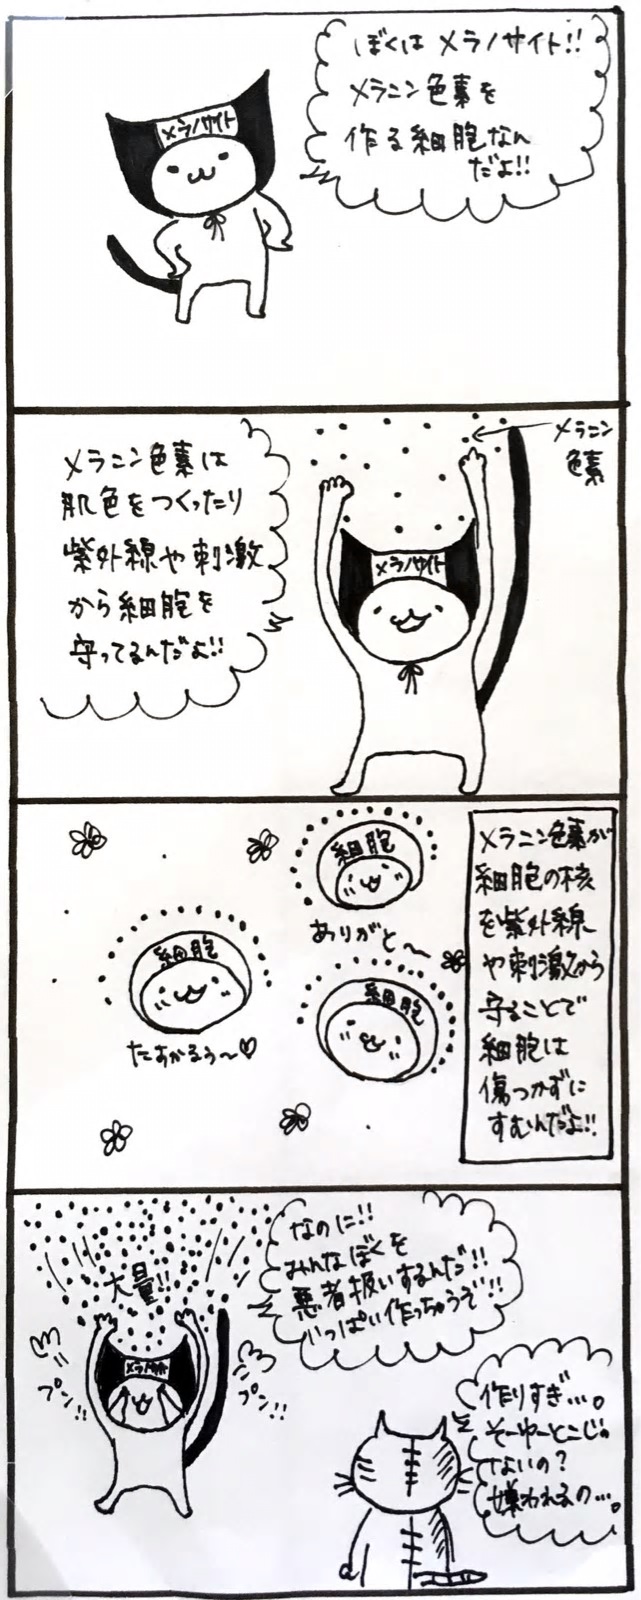 ぼくはメラノサイト!!
メラニン色素を
作る細胞なん
だよ!!
メラノサイト
メラニン
色素
メラニン色素は
肌色をつくったり
紫外線や刺激
から細胞を
守ってるんだよ!!
メラノサイト
メラニン色素が
細胞の核
を紫外線
や刺激から
守ることで
細胞は
傷つかずに
すむんだよ!!
細胞
ありがと〜
細胞
たすかるぅ〜♡
細胞
なのに!!
みんなぼくを
悪者扱いするんだ!!
いっぱい作っちゃうぞ!!
大量!!
メラノサイト
プン!!
プン!!
作りすぎ…。
そーゆーとこじゃ
ないの?
嫌われるの…。